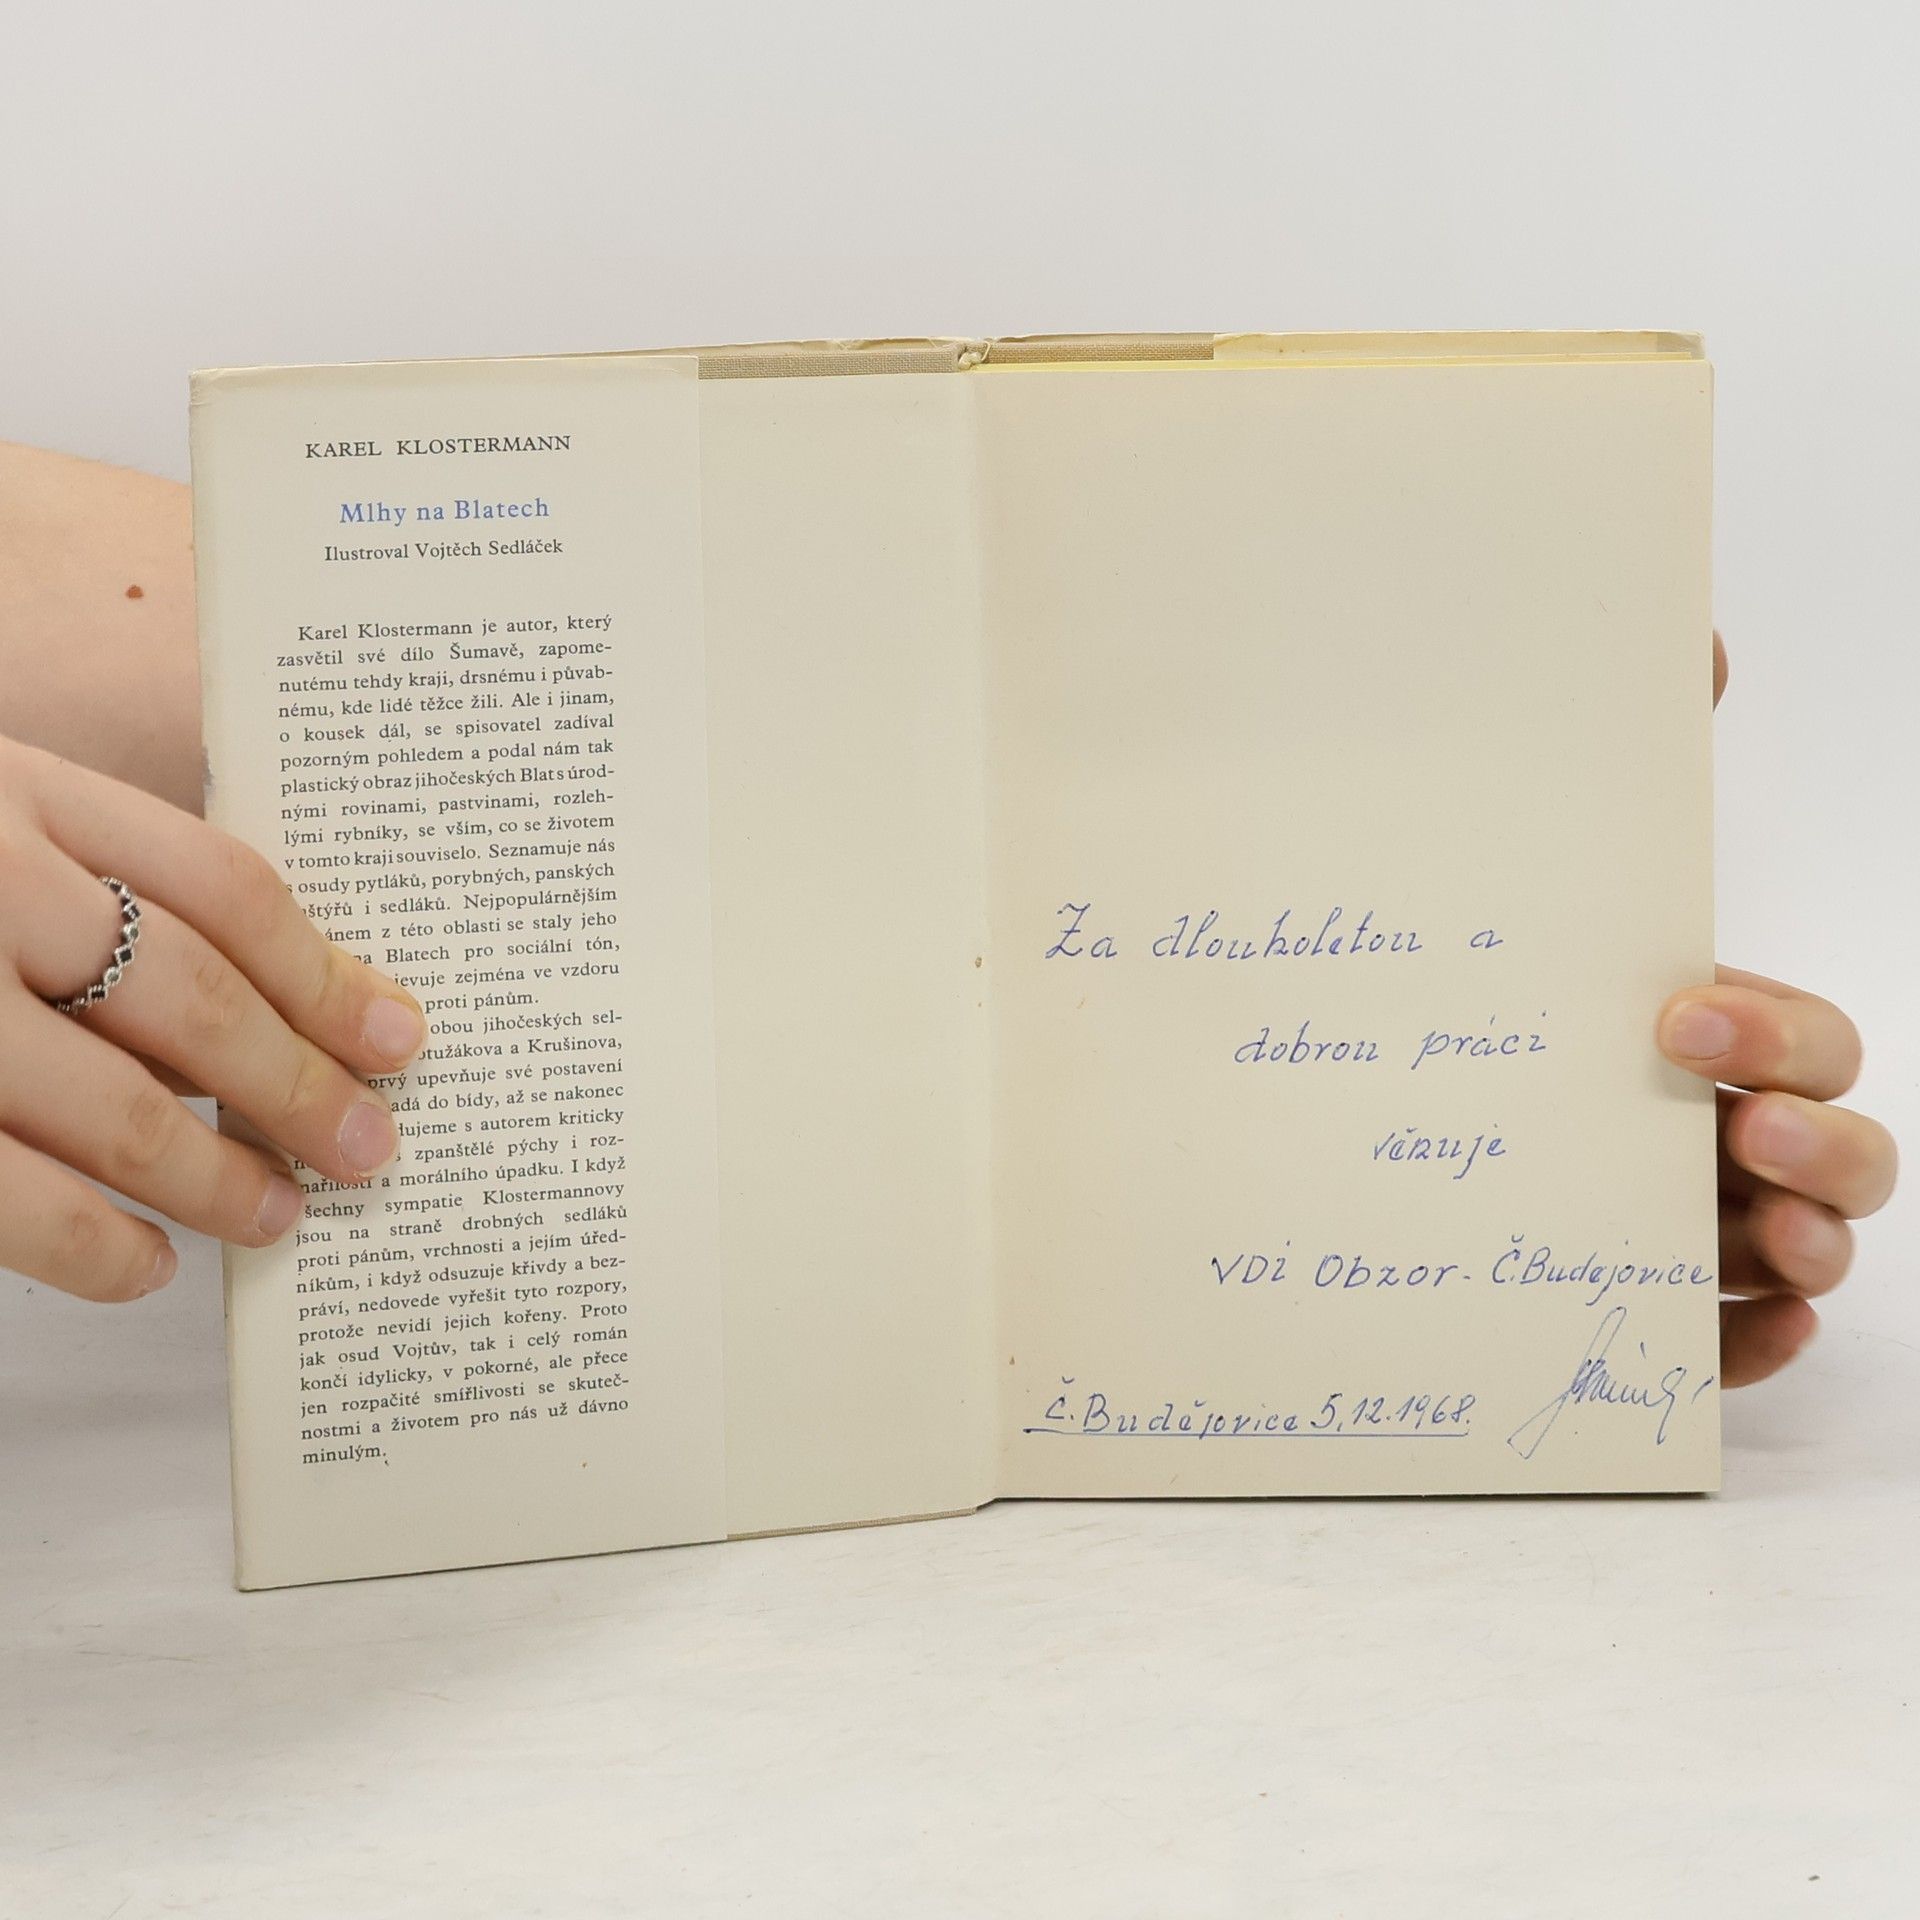 KAREL KLOSTERMANN
Mlhy na Blatech
Ilustroval Vojtěch Sedláček
Karel Klostermann je autor, který
zasvětil své dílo Šumavě, zapome-
nutému tehdy kraji, drsnému i půvab-
nému, kde lidé těžce žili. Ale i jinam,
o kousek dál, se spisovatel zadíval
pozorným pohledem a podal nám tak
plastický obraz jihočeských Blat s úrod-
nými rovinami, pastvinami, rozleh-
lými rybníky, se vším, co se životem
v tomto kraji souviselo. Seznamuje nás
s osudy pytláků, porybných, panských
i sedláků. Nejpopulárnějším
z této oblasti se staly jeho
Blatech pro sociální tón,
zejména ve vzdoru
proti pánům.
obou jihočeských sel-
a Krušinova,
prvý upevňuje své postavení
do bídy, až se nakonec
s autorem kriticky
zpanštělé pýchy i roz-
a morálního úpadku. I když
sympatie Klostermannovy
jsou na straně drobných sedláků
proti pánům, vrchnosti a jejím úřed-
níkům, i když odsuzuje křivdy a bez-
práví, nedovede vyřešit tyto rozpory,
protože nevidí jejich kořeny. Proto
jak osud Vojtův, tak i celý román
končí idylicky, v pokorné, ale přece
jen rozpačité smířlivosti se skuteč-
nostmi a životem pro nás už dávno
minulým.
Za dlouholetou a
dobrou práci
věnuje
VDI Obzor - Č.Budějovice
Č.Budějovice 5.12.1968.